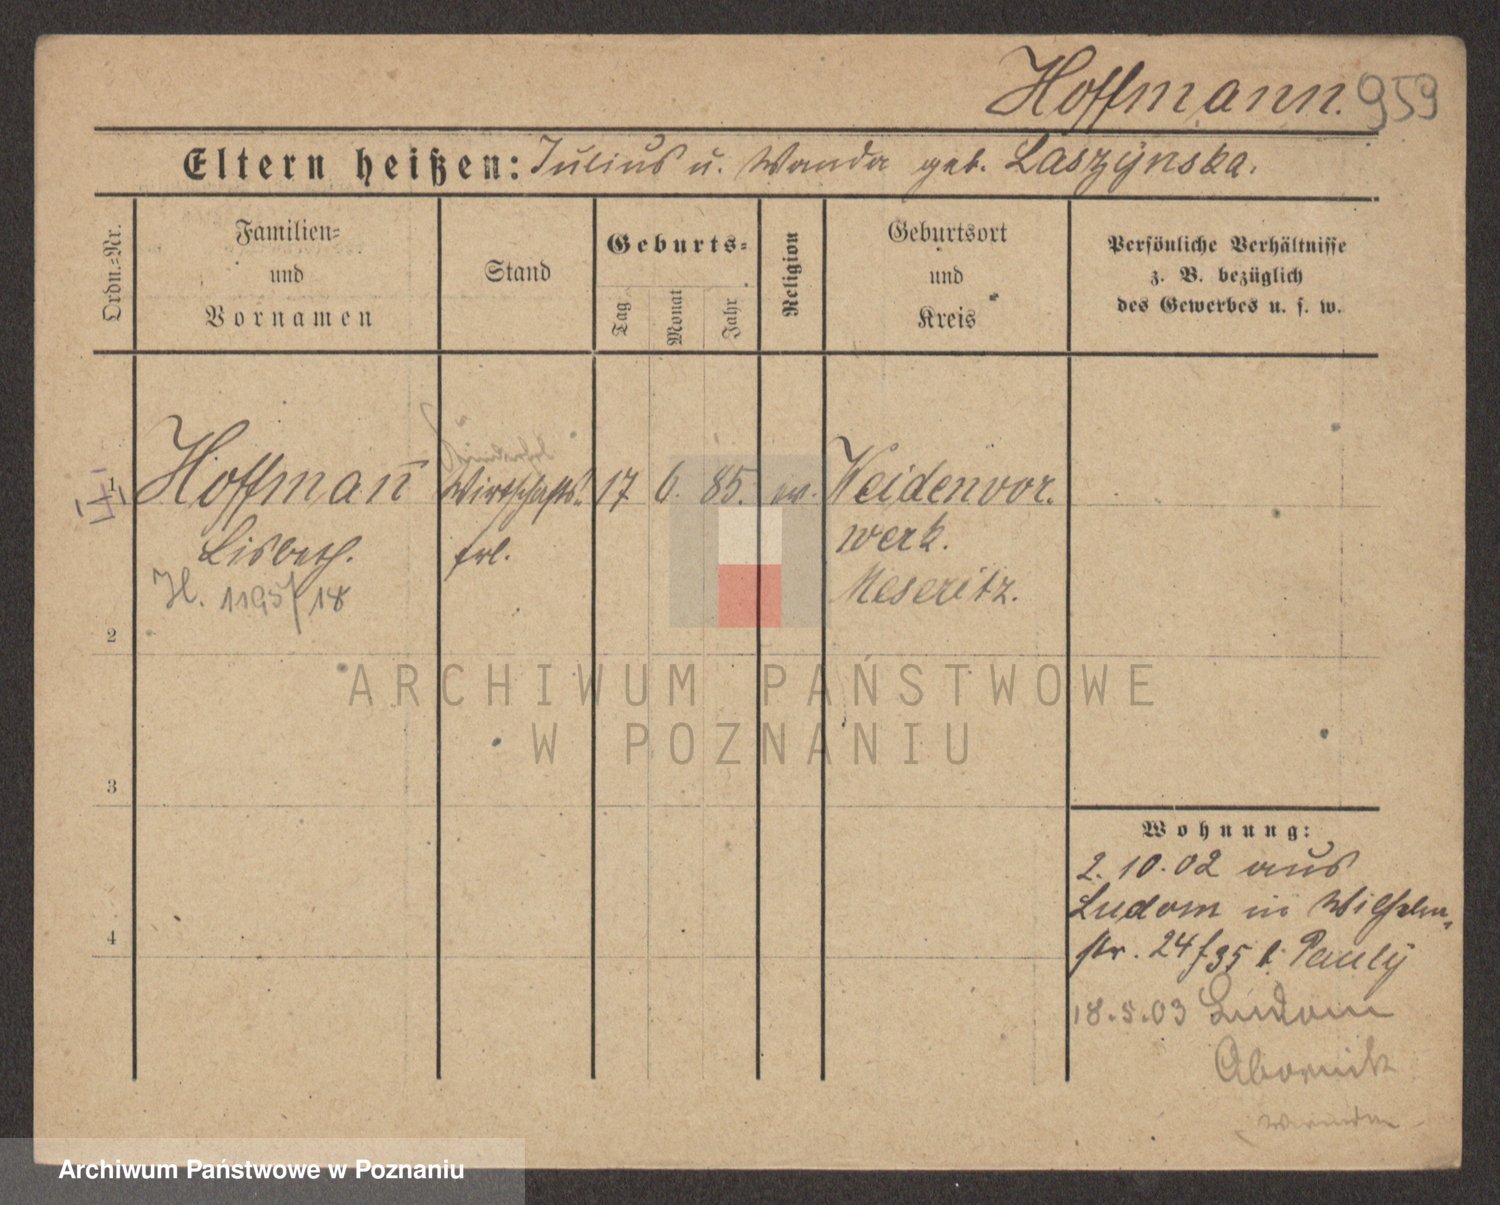 Hoffmann. 959
Eltern heißen: Julius u. Wanda geb. Laszynska.
Ordn.=Nr.
Familien=
und
Vornamen
Stand
Geburts=
Tag
Monat
Jahr
Religion
Geburtsort
und
Kreis
Persönliche Verhältnisse
z. B. bezüglich
des Gewerbes u. s. w.
1
Hoffmañ
Lisbeth.
H. 1195/18
Wirtschafts.
frl.
17 6. 85. ev.
Weidenvor.
werk.
Meseritz.
2
3
4
ARCHIWUM PAŃSTWOWE
W POZNANIU
Wohnung:
2. 10. 02 aus
Ludom in Wilhelm
str. 24 f 35 b. Pauly
18. 5. 03 Ludom
Obornik
Archiwum Państwowe w Poznaniu